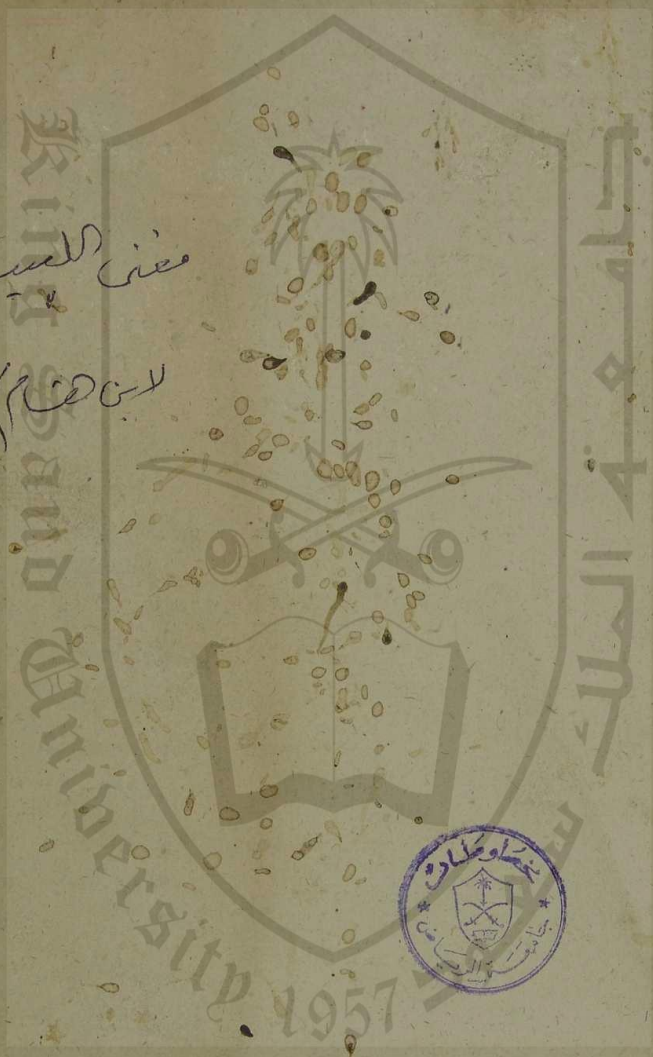 مغنى اللبيب
لابن هشام
King Saud University
جامعة الملك سعود
1957
مخطوطات
جامعة الرياض